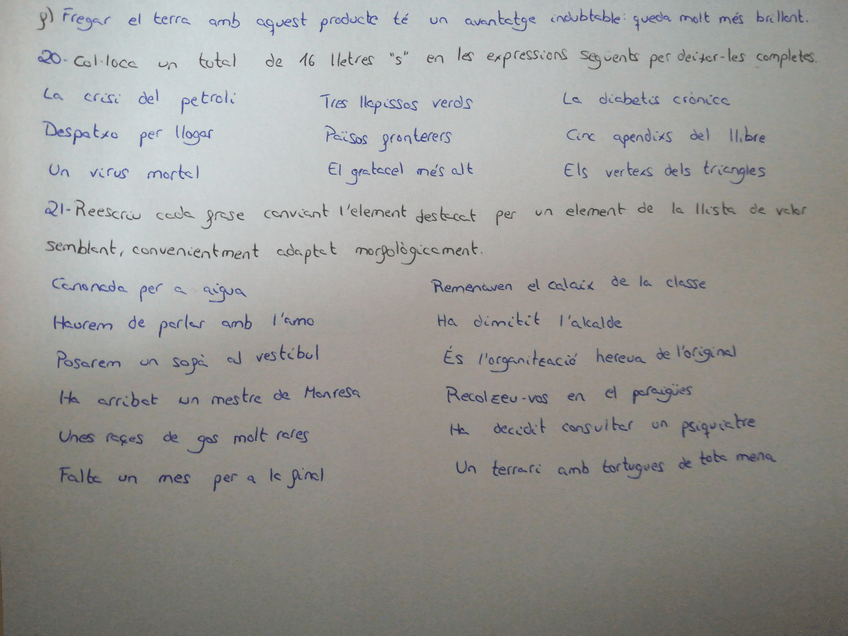 f) Fregar el terra amb aquest producte té un avantatge indubtable: queda molt més brillant.
20- Col·loca un total de 16 lletres "s" en les expressions següents per deixar-les completes.
La crisi del petroli Tres llapissos verds La diabetis crònica
Despatxo per llogar Països fronterers Cinc apendixs del llibre
Un virus mortal El gratacel més alt Els vertexs dels triangles
21- Reescriu cada frase canviant l'element destacat per un element de la llista de valor
semblant, convenientment adaptat morfològicament.
Canonada per a aigua Remenaven el calaix de la classe
Haurem de parlar amb l'amo Ha dimitit l'alcalde
Posarem un sofà al vestíbul És l'organització hereva de l'original
Ha arribat un mestre de Manresa Recolzeu-vos en el paraigües
Unes races de gos molt rares Ha decidit consultar un psiquiatre
Falta un mes per a la final Un terrari amb tortugues de tota mena